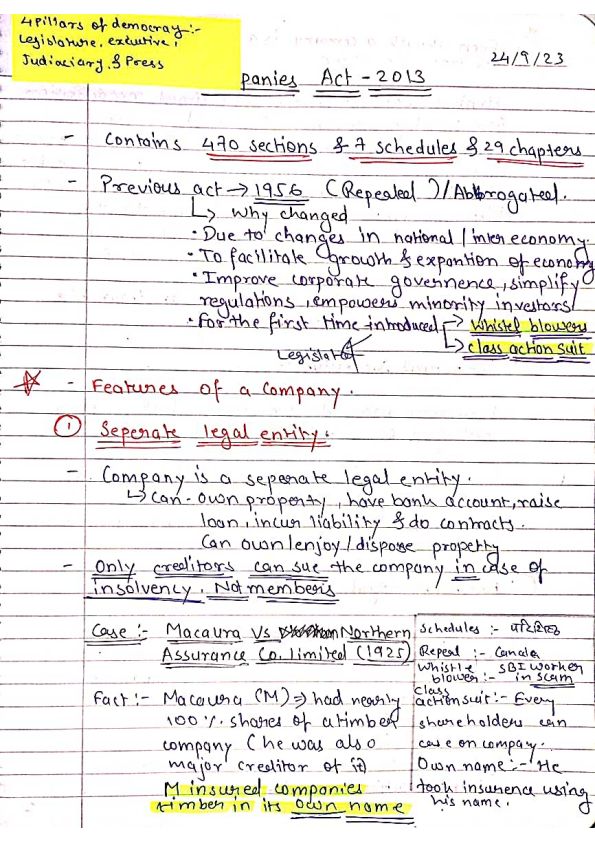 4 Pillars of democracy:-
Legislature, exeutive,
Judiaciary, & Press
24/9/23
panies Act - 2013
- Contains 470 sections & 7 schedules & 29 chapters
- Previous act → 1956 (Repealed)/Abbrogated.
↳ Why changed
• Due to changes in national/inter economy.
• To facilitate growth & expantion of economy
• Improve corporate governence, simplify
regulations, empowers minority investors
• For the first time introduced → Whistel blowers
↳ class action suit
Legislator
☆ - Features of a Company.
① Seperate legal entity.
- Company is a seperate legal entity.
↳ Can - Own property, have bank account, raise
loan, incur liability & do contracts.
Can own/enjoy/dispose property
- Only creditors can sue the company in case of
insolvency. Not members
Case :- Macaura Vs Northern
Assurance Co. limited (1925)
Fact :- Macaura (M) ⇒ had nearly
100% shares of a timber
company (he was also
major creditor of it)
M insured companies
timber in its own name
Schedules :- परिशिष्ट
Repeal :- Cancle
Whistle blower :- SBI worker
in scam
class
action suit :- Every
shareholders can
case on company.
Own name :- He
took insurence using
his name.